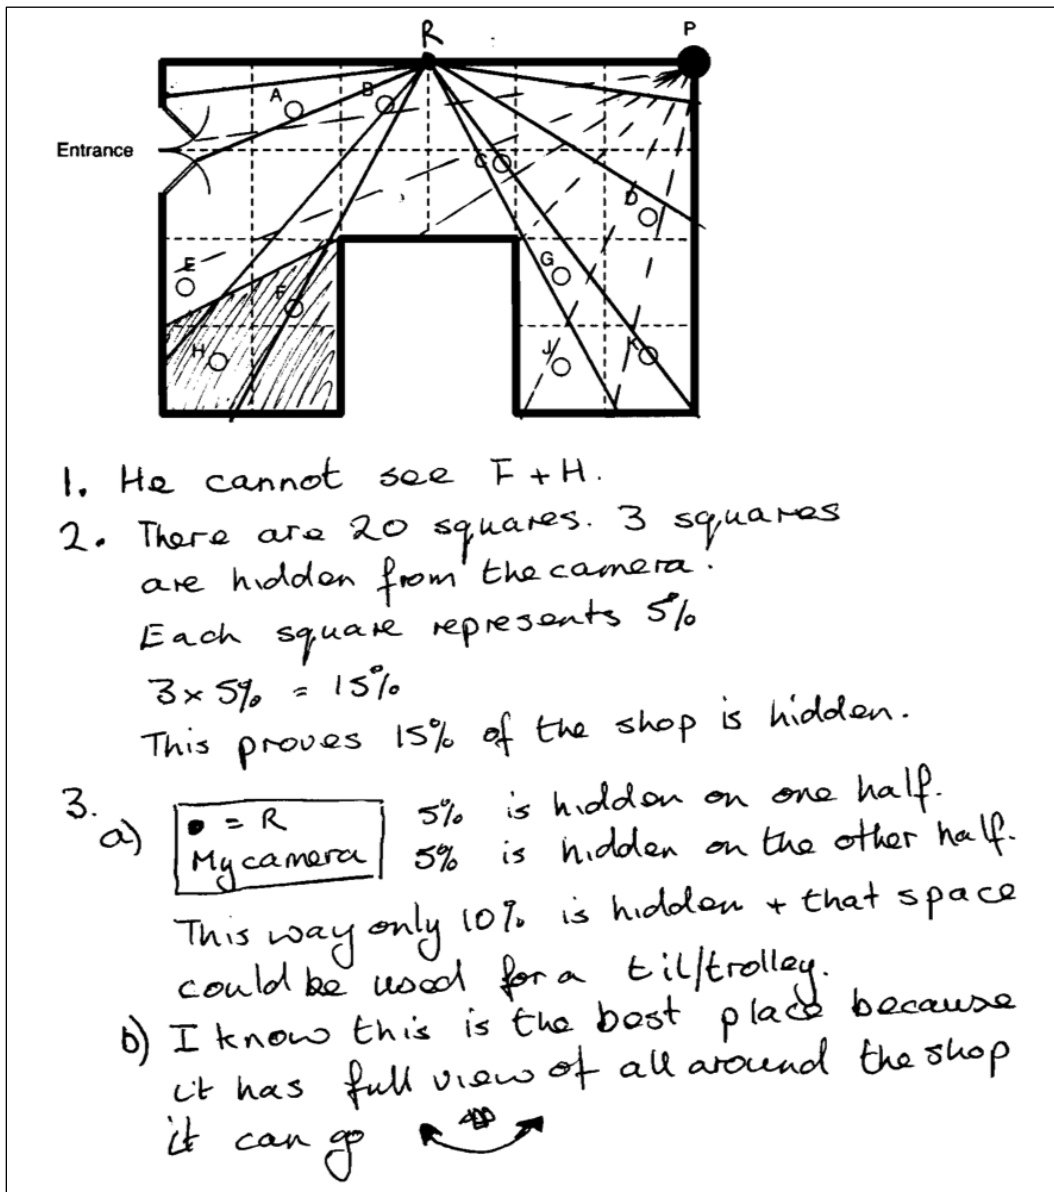 R
P
A
B
Entrance
C
D
E
G
F
H
J
K
1. He cannot see F + H.
2. There are 20 squares. 3 squares
are hidden from the camera.
Each square represents 5%
3 x 5% = 15%
This proves 15% of the shop is hidden.
3.
a) • = R 5% is hidden on one half.
My camera 5% is hidden on the other half.
This way only 10% is hidden + that space
could be used for a til/trolley.
b) I know this is the best place because
it has full view of all around the shop
it can go